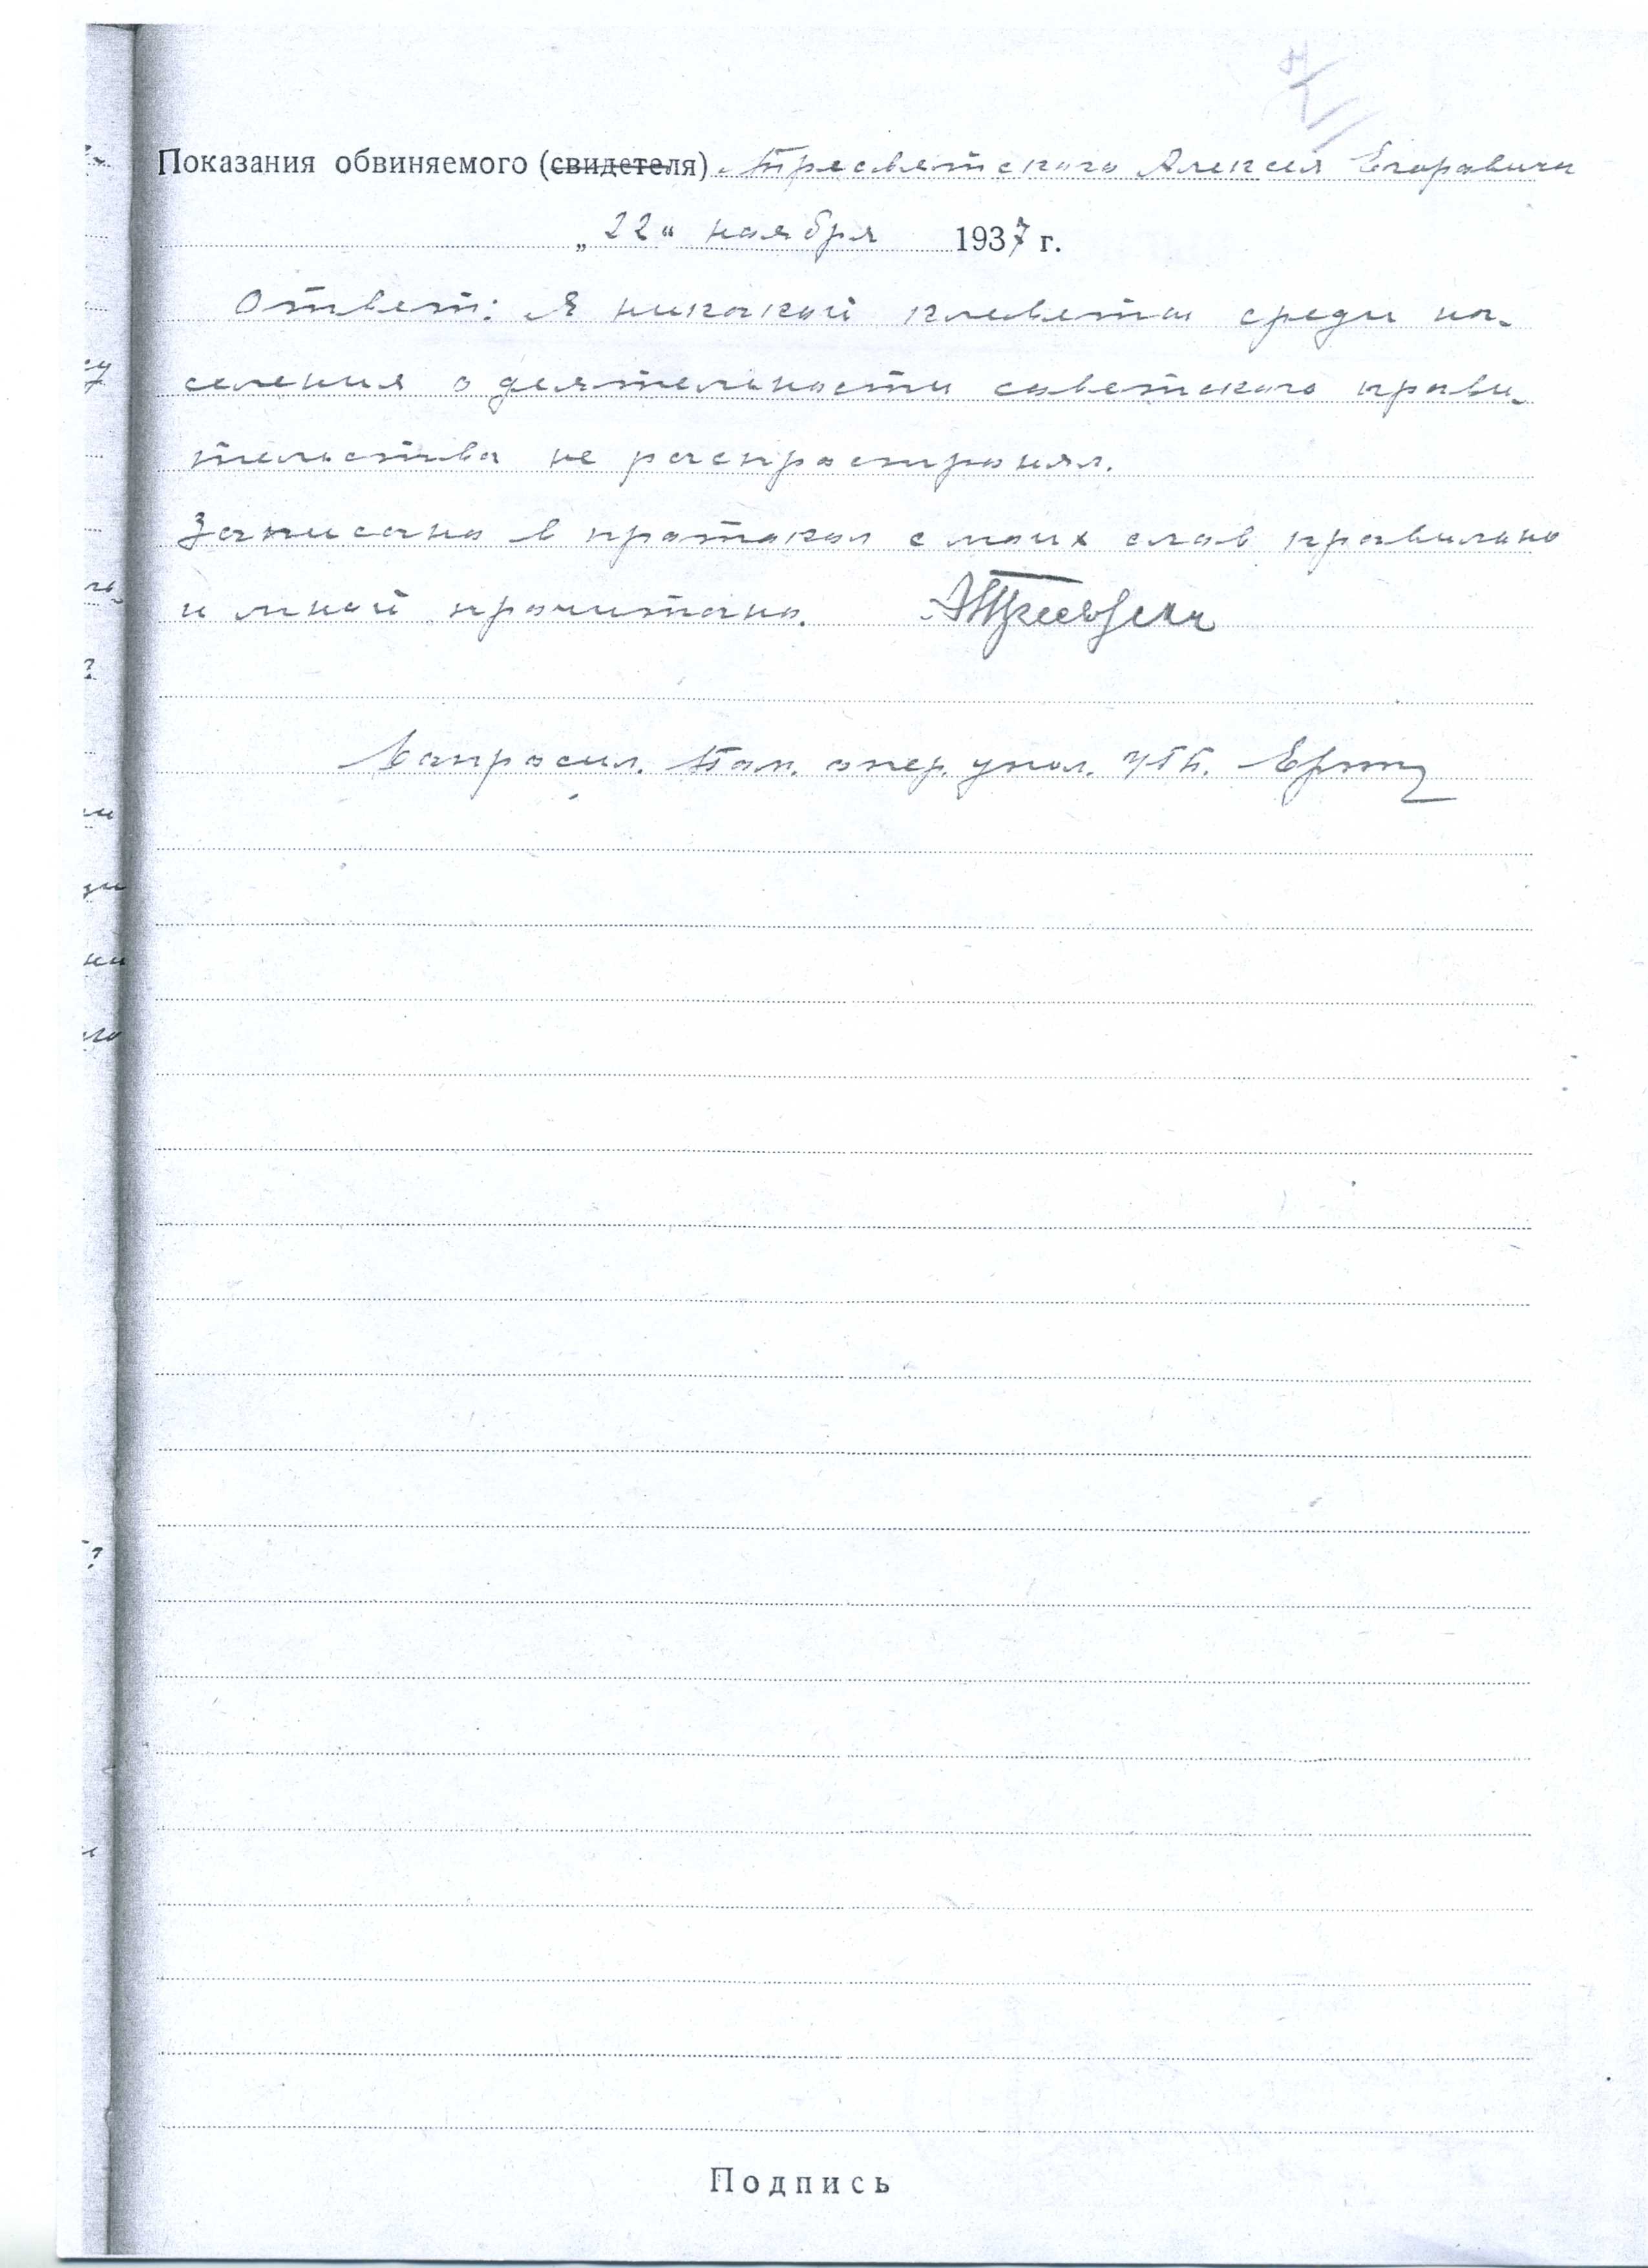 Показания обвиняемого (свидетеля) Тресвятского Алексея Егоровича
„22“ ноября 1937 г.
Ответ: Я никакой клеветы среди на-
селения о деятельности советского прави-
тельства не распространял.
Записано в протокол с моих слов правильно
и мной прочитано.
Допросил. Пом. опер. упол. УГБ.
Подпись